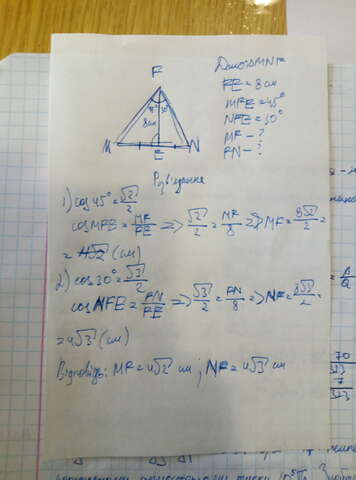 F
Дано: △MNF
FE = 8 см
MFE = 45°
NFE = 30°
MF - ?
FN - ?
45° 30°
8см
M E N
Розв'язання
1) cos 45° = √2/2
cos MFE = MF/FE => √2/2 = MF/8 => MF = 8√2/2 =
= 4√2 (см)
2) cos 30° = √3/2
cos NFE = FN/FE => √3/2 = FN/8 => NF = 8√3/2 =
= 4√3 (см)
Відповідь: MF = 4√2 см; NF = 4√3 см
70
7